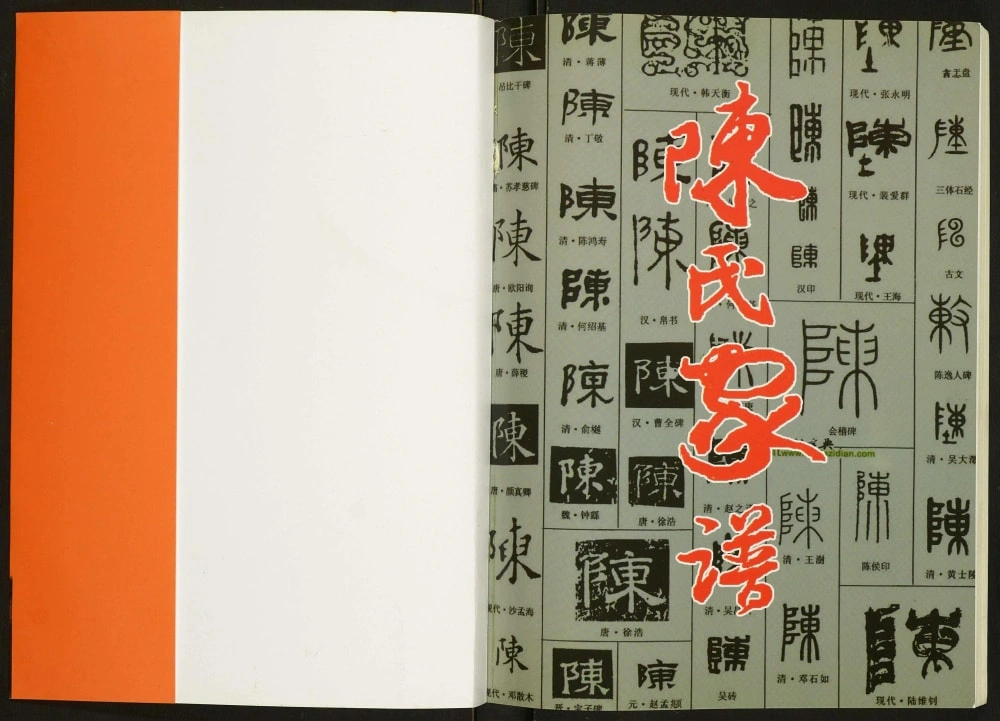 陳氏家谱
陳
吊比干碑
陳
苏孝慈碑
陳
唐·欧阳询
陳
唐·薛稷
陳
唐·颜真卿
陳
现代·沙孟海
陳
现代·邓散木
陳
清·蒋薄
陳
清·丁敬
陳
清·陈鸿寿
陳
清·何绍基
陳
清·俞樾
陳
魏·钟繇
陳
唐·徐浩
陳
现代·韩天衡
陳
陳
汉·帛书
陳
汉·曹全碑
陳
唐·徐浩
陳
元·赵孟頫
清·赵之
清·吴
陳
吴砖
陳
陳
陳
陳
汉印
陳
会稽碑
陳
清·王澍
陳
清·邓石如
现代·张永明
现代·裴爱群
现代·王海
陳
陈侯印
陳
现代·陆维钊
三体石经
古文
陈逸人碑
清·吴大
陳
清·黄士陵